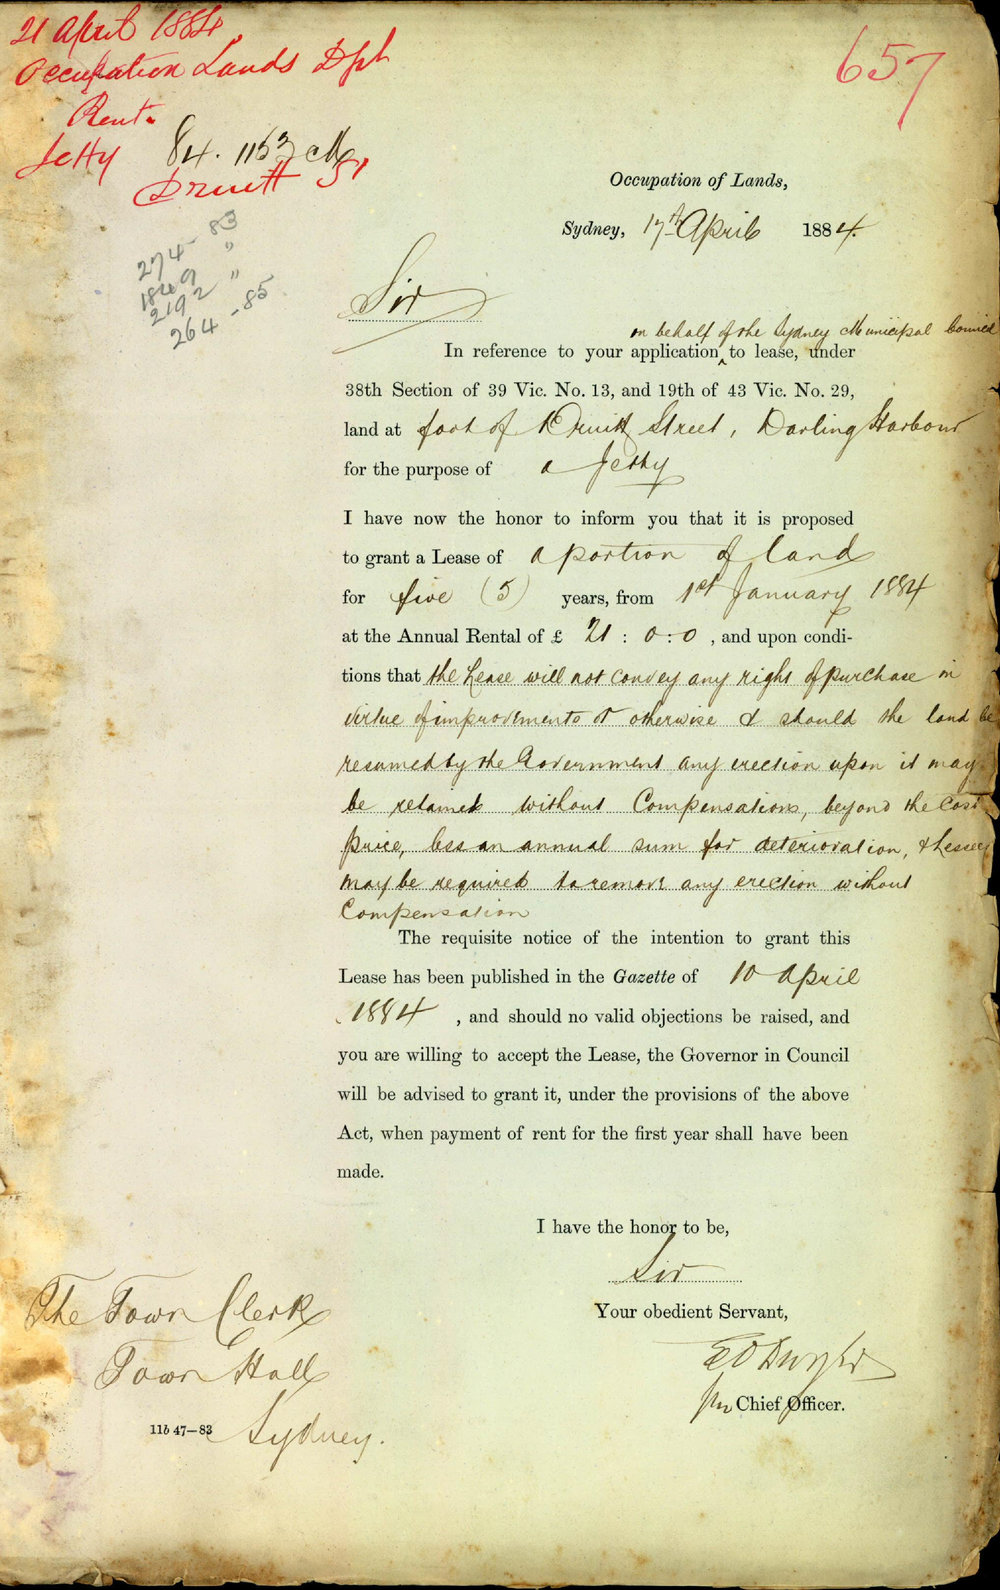 21 April 1884
Occupation Lands Dpt
Rent.
Jetty
84. 1153 M
Druitt St
657
274 - 83
1849 "
2192 "
264 - 85
Occupation of Lands,
Sydney, 17th April 1884.
Sir
on behalf of the Sydney Municipal Council
In reference to your application ^ to lease, under
38th Section of 39 Vic. No. 13, and 19th of 43 Vic. No. 29,
land at foot of Druitt Street, Darling Harbour
for the purpose of a Jetty
I have now the honor to inform you that it is proposed
to grant a Lease of a portion of land
for five (5) years, from 1st January 1884
at the Annual Rental of £ 21 : 0 : 0 , and upon condi-
tions that the Lease will not convey any right of purchase in
virtue of improvements or otherwise & should the land be
resumed by the Government any erection upon it may
be retained without Compensation, beyond the Cost
price, less an annual sum for deterioration, & Lessee
may be required to remove any erection without
Compensation
The requisite notice of the intention to grant this
Lease has been published in the Gazette of 10 April
1884 , and should no valid objections be raised, and
you are willing to accept the Lease, the Governor in Council
will be advised to grant it, under the provisions of the above
Act, when payment of rent for the first year shall have been
made.
I have the honor to be,
Sir
Your obedient Servant,
for Chief Officer.
The Town Clerk
Town Hall
Sydney.
11b 47—83